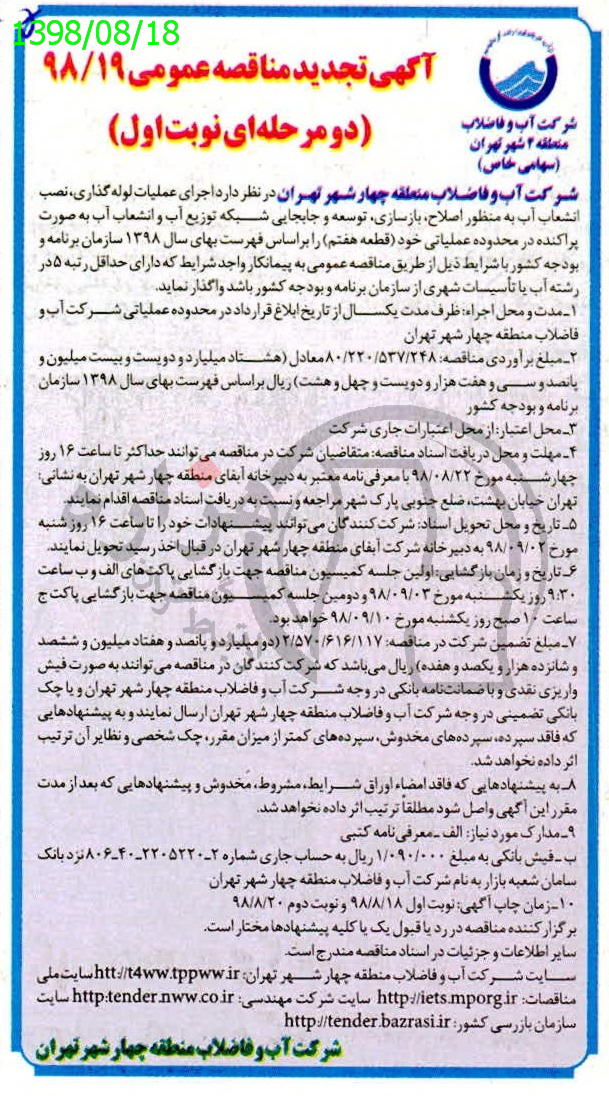 1398/08/18
آگهی تجدید مناقصه عمومی ۹۸/۱۹
(دو مرحله‌ای نوبت اول)
شرکت آب و فاضلاب
منطقه ۴ شهر تهران
(سهامی خاص)
شرکت آب و فاضلاب منطقه چهار شهر تهران در نظر دارد اجرای عملیات لوله گذاری، نصب
انشعاب آب به منظور اصلاح، بازسازی، توسعه و جابجایی شبکه توزیع آب و انشعاب آب به صورت
پراکنده در محدوده عملیاتی خود (قطعه هفتم) را براساس فهرست بهای سال ۱۳۹۸ سازمان برنامه و
بودجه کشور با شرایط ذیل از طریق مناقصه عمومی به پیمانکار واجد شرایط که دارای حداقل رتبه ۵ در
رشته آب یا تأسیسات شهری از سازمان برنامه و بودجه کشور باشد واگذار نماید.
۱ـ مدت و محل اجراء: ظرف مدت یکسال از تاریخ ابلاغ قرارداد در محدوده عملیاتی شرکت آب و
فاضلاب منطقه چهار شهر تهران
۲ـ مبلغ برآوردی مناقصه: ۸۰/۲۲۰/۵۳۷/۲۴۸ معادل (هشتاد میلیارد و دویست و بیست میلیون و
پانصد و سی و هفت هزار و دویست و چهل و هشت) ریال براساس فهرست بهای سال ۱۳۹۸ سازمان
برنامه و بودجه کشور
۳ـ محل اعتبار: از محل اعتبارات جاری شرکت
۴ـ مهلت و محل دریافت اسناد مناقصه: متقاضیان شرکت در مناقصه می‌توانند حداکثر تا ساعت ۱۶ روز
چهارشنبه مورخ ۹۸/۰۸/۲۲ با معرفی‌نامه معتبر به دبیرخانه آبفای منطقه چهار شهر تهران به نشانی:
تهران خیابان بهشت، ضلع جنوبی پارک شهر مراجعه و نسبت به دریافت اسناد مناقصه اقدام نمایند.
۵ـ تاریخ و محل تحویل اسناد: شرکت کنندگان می‌توانند پیشنهادات خود را تا ساعت ۱۶ روز شنبه
مورخ ۹۸/۰۹/۰۲ به دبیرخانه شرکت آبفای منطقه چهار شهر تهران در قبال اخذ رسید تحویل نمایند.
۶ـ تاریخ و زمان بازگشایی: اولین جلسه کمیسیون مناقصه جهت بازگشایی پاکت‌های الف و ب ساعت
۹:۳۰ روز یکشنبه مورخ ۹۸/۰۹/۰۳ و دومین جلسه کمیسیون مناقصه جهت بازگشایی پاکت ج
ساعت ۱۰ صبح روز یکشنبه مورخ ۹۸/۰۹/۱۰ خواهد بود.
۷ـ مبلغ تضمین شرکت در مناقصه: ۲/۵۷۰/۶۱۶/۱۱۷ (دو میلیارد و پانصد و هفتاد میلیون و ششصد
و شانزده هزار و یکصد و هفده) ریال می‌باشد که شرکت کنندگان در مناقصه می‌توانند به صورت فیش
واریزی نقدی و یا ضمانت‌نامه بانکی در وجه شرکت آب و فاضلاب منطقه چهار شهر تهران و یا چک
بانکی تضمینی در وجه شرکت آب و فاضلاب منطقه چهار شهر تهران ارسال نمایند و به پیشنهادهایی
که فاقد سپرده، سپرده‌های مخدوش، سپرده‌های کمتر از میزان مقرر، چک شخصی و نظایر آن ترتیب
اثر داده نخواهد شد.
۸ـ به پیشنهادهایی که فاقد امضاء اوراق شرایط، مشروط، مخدوش و پیشنهادهایی که بعد از مدت
مقرر این آگهی واصل شود مطلقاً ترتیب اثر داده نخواهد شد.
۹ـ مدارک مورد نیاز: الف ـ معرفی‌نامه کتبی
ب ـ فیش بانکی به مبلغ ۱/۰۹۰/۰۰۰ ریال به حساب جاری شماره ۲ـ۲۲۰۵۲۲۰ـ۴۰ـ۸۰۶ نزد بانک
سامان شعبه بازار به نام شرکت آب و فاضلاب منطقه چهار شهر تهران
۱۰ـ زمان چاپ آگهی: نوبت اول ۹۸/۸/۱۸ و نوبت دوم ۹۸/۸/۲۰
برگزار کننده مناقصه در رد یا قبول یک یا کلیه پیشنهادها مختار است.
سایر اطلاعات و جزئیات در اسناد مناقصه مندرج است.
سایت شرکت آب و فاضلاب منطقه چهار شهر تهران: htt://t4ww.tppww.ir سایت ملی
مناقصات: http://iets.mporg.ir سایت شرکت مهندسی: http:tender.nww.co.ir سایت
سازمان بازرسی کشور: http://tender.bazrasi.ir
شرکت آب و فاضلاب منطقه چهار شهر تهران